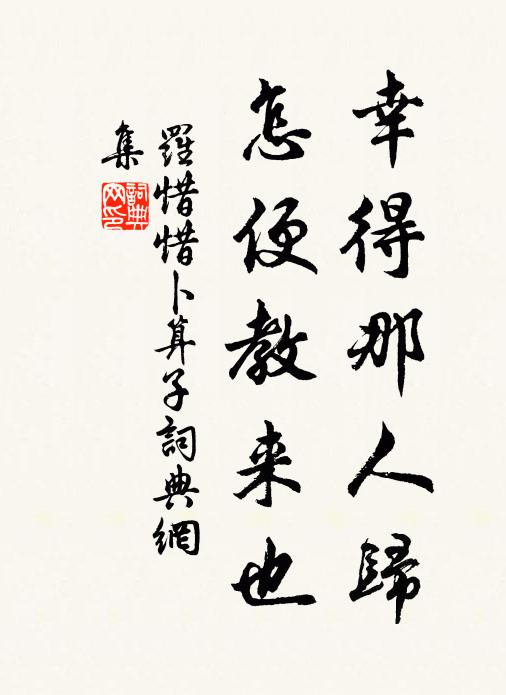 幸得那人歸
怎便教来也
羅惜惜卜算子詞典網
集
詞典网印